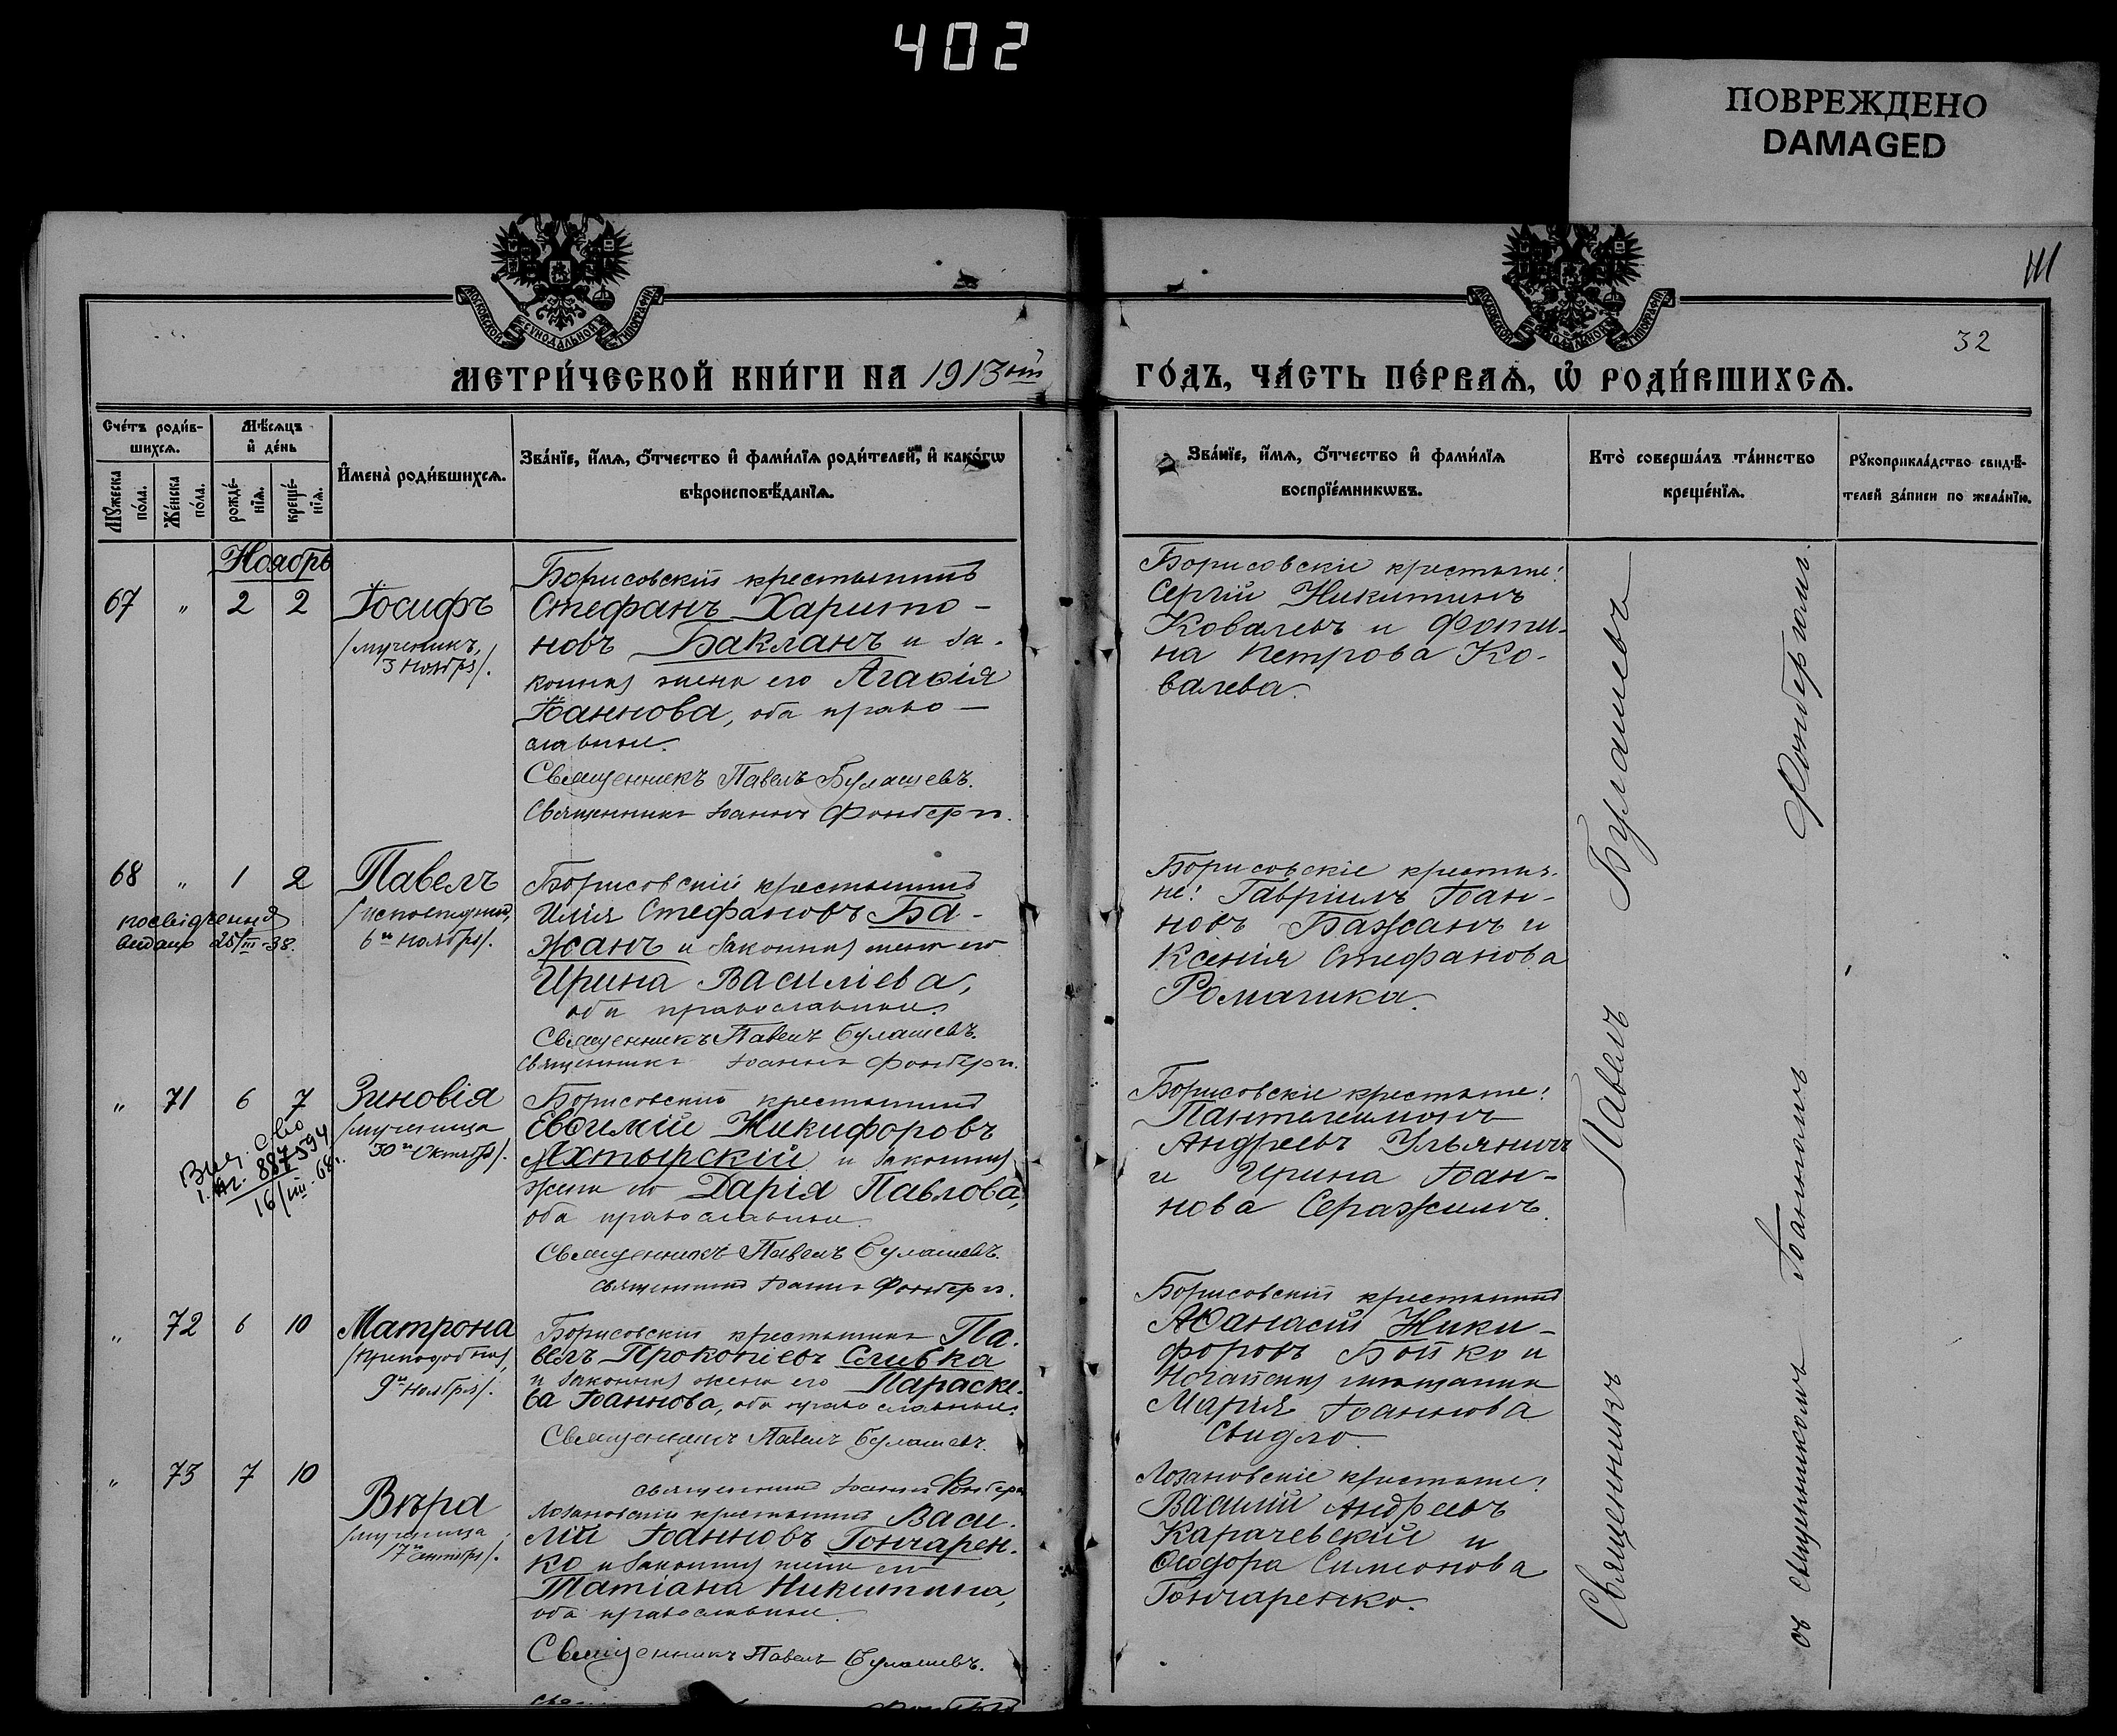 402
ПОВРЕЖДЕНО
DAMAGED
МОСКОВСКОЙ СѴНОДАЛЬНОЙ ТИПОГРАФІИ
МОСКОВСКОЙ СѴНОДАЛЬНОЙ ТИПОГРАФІИ
32
МЕТРИ́ЧЕСКОЙ КНИ́ГИ НА 1913ый
ГО́ДЪ, ЧА́СТЬ ПЕ́РВАѦ, Ѡ҆ РОДИ́ВШИХСѦ.
Сче́тъ роди́в-
шихсѧ.
Мѣ́сѧцъ
и҆ де́нь
Мꙋ́жеска
по́ла.
Же́нска
по́ла.
рожде́-
нїѧ.
креще́-
нїѧ.
И҆мена̀ роди́вшихсѧ.
Зва́нїе, и҆́мѧ, ѻ҆́тчество и҆ фами́лїѧ роди́телей, и҆ како́гѡ
вѣроисповѣ́данїѧ.
Зва́нїе, и҆́мѧ, ѻ҆́тчество и҆ фами́лїѧ
воспрїе́мникѡвъ.
Кто̀ соверша́лъ та́инство
креще́нїѧ.
Рꙋкоприкла́дство свидѣ́-
телей за́писи по жела́нїю.
Ноябрь
67 " 2 2 Іосифъ
/мученикъ,
3 ноября/.
Борисовскій крестьянинъ
Стефанъ Харито-
новъ Бакланъ и за-
конная жена его Агаѳія
Іоаннова, оба право-
славные.
Священникъ Павелъ Булашевъ.
Священникъ Іоаннъ Фонберг
Борисовскіе крестьяне:
Сергій Никитинъ
Ковалевъ и Фоти-
на Петрова Ко-
валева.
68 " 1 2 Павелъ
/исповѣдник,
6го ноября/.
посвідчення
видано 25/III-38.
Борисовскій крестьянинъ
Илія Стефановъ Ба-
жанъ и законная жена его
Ирина Василіева,
оба православные.
Священникъ Павелъ Булашевъ.
Священникъ Іоаннъ Фонберг
Борисовскіе крестья-
не: Гавріилъ Іоан-
новъ Бажанъ и
Ксенія Стефанова
" 71 6 7 Зиновія
/мученица
30го Октября/.
Выд. св-во
887594
16/III-68г.
Борисовскій крестьянинъ
Евѳимій Никифоровъ
Ахтырскій и законная
жена его Дарія Павлова,
оба православные.
Священникъ Павелъ Булашевъ.
Священникъ Іоаннъ Фонберг
Борисовскіе крестьяне:
Пантелеимонъ
Андреевъ Ульяничъ
и Ирина Іоан-
нова Серажимъ.
" 72 6 10 Матрона
/преподобная,
9го ноября/.
Борисовскій крестьянинъ Па-
велъ Прокопіевъ Сливка
и законная жена его Параске-
ва Іоаннова, оба православные.
Священникъ Павелъ Булашевъ.
Священникъ Іоаннъ Фонберг
Борисовскій крестьянинъ
Аѳанасій Ники-
форовъ Бойко и
Ногайская мѣщанка
Марія Іоаннова
Свидло.
" 73 7 10 Вѣра
/мученица
17го Сентября/.
Лозановскій крестьянинъ Васи-
лій Іоанновъ Гончарен-
ко и законная жена его
Татіана Никитина,
оба православные.
Священникъ Павелъ Булашевъ.
Лозановскіе крестьяне:
Василій Андреевъ
Карачевскій и
Ѳеодора Симеонова
Гончаренко.
Священникъ Павелъ Булашевъ
съ священникомъ Іоанномъ Фонбергомъ.